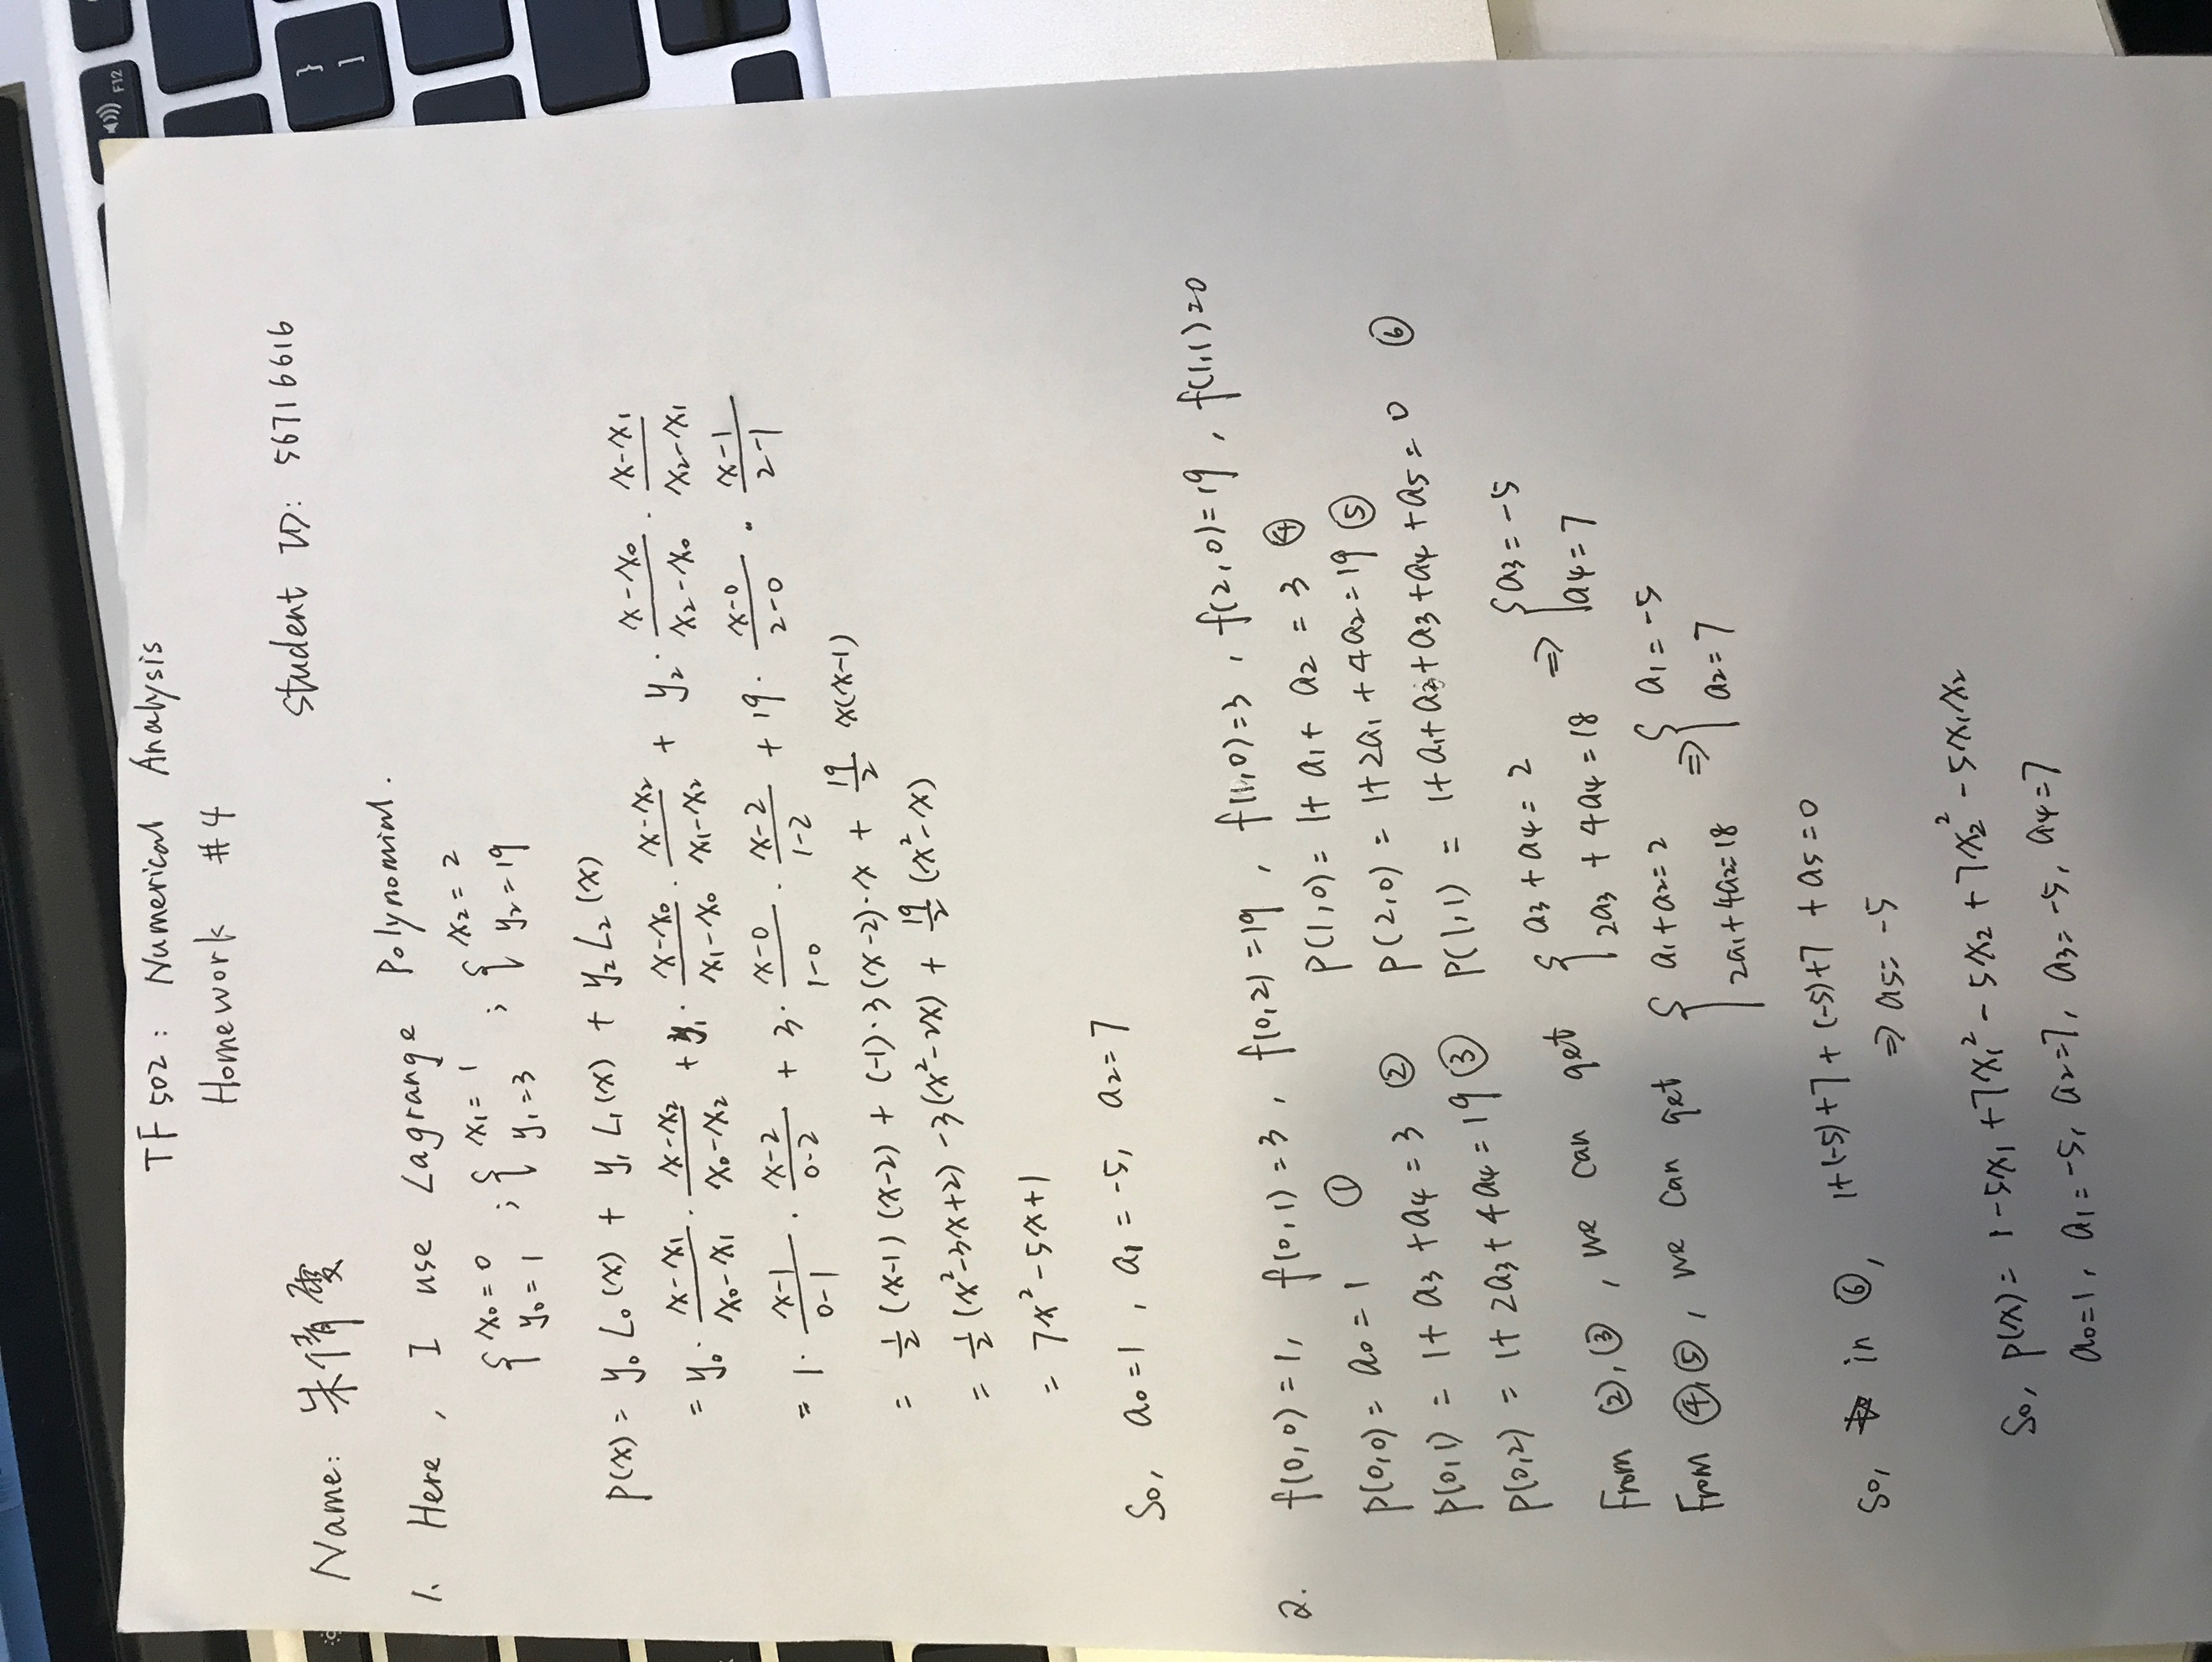 TF502: Numerical Analysis
Homework #4
Name: 朱倩雯 Student ID: 56716616
1. Here, I use Lagrange Polynomial.
{x₀=0 y₀=1 ; {x₁=1 y₁=3 ; {x₂=2 y₂=19
P(x) = y₀L₀(x) + y₁L₁(x) + y₂L₂(x)
= y₀·(x-x₁)/(x₀-x₁)·(x-x₂)/(x₀-x₂) + y₁·(x-x₀)/(x₁-x₀)·(x-x₂)/(x₁-x₂) + y₂·(x-x₀)/(x₂-x₀)·(x-x₁)/(x₂-x₁)
= 1·(x-1)/(0-1)·(x-2)/(0-2) + 3·(x-0)/(1-0)·(x-2)/(1-2) + 19·(x-0)/(2-0)·(x-1)/(2-1)
= 1/2(x-1)(x-2) + (-1)·3(x-2)·x + 19/2 x(x-1)
= 1/2(x²-3x+2) -3(x²-2x) + 19/2(x²-x)
= 7x²-5x+1
So, a₀=1, a₁=-5, a₂=7
2. f(0,0)=1, f(0,1)=3, f(0,2)=19, f(1,0)=3, f(2,0)=19, f(1,1)=0
P(0,0) = a₀ = 1 ① P(1,0) = 1+a₁+a₂ = 3 ④
P(0,1) = 1+a₃+a₄ = 3 ② P(2,0) = 1+2a₁+4a₂ = 19 ⑤
P(0,2) = 1+2a₃+4a₄ = 19 ③ P(1,1) = 1+a₁+a₂+a₃+a₄+a₅ = 0 ⑥
From ②,③, we can get {a₃+a₄=2 2a₃+4a₄=18 ⇒ {a₃=-5 a₄=7
From ④,⑤, we can get {a₁+a₂=2 2a₁+4a₂=18 ⇒ {a₁=-5 a₂=7
So, in ⑥, 1+(-5)+7+(-5)+7+a₅=0
⇒ a₅=-5
So, P(x) = 1-5x₁+7x₁²-5x₂+7x₂²-5x₁x₂
a₀=1, a₁=-5, a₂=7, a₃=-5, a₄=7
F12
}
]